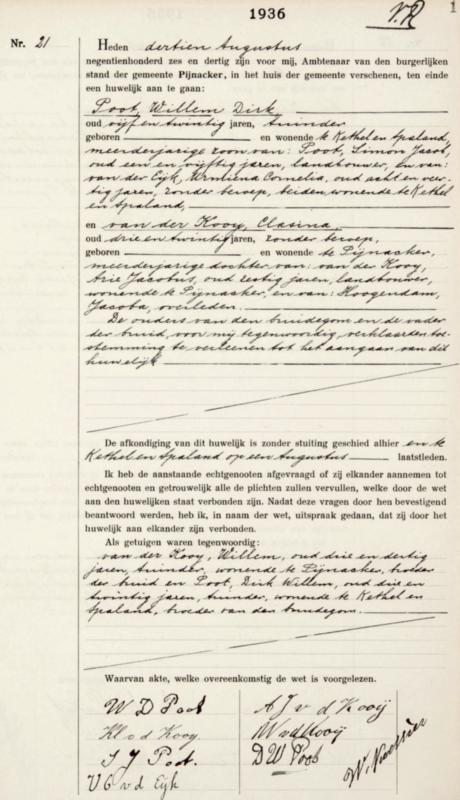 1936
1
Nr. 21
Heden dertien Augustus
negentienhonderd zes en dertig zijn voor mij, Ambtenaar van den burgerlijken
stand der gemeente Pijnacker, in het huis der gemeente verschenen, ten einde
een huwelijk aan te gaan:
Poot, Willem Dirk,
oud vijf en twintig jaren, tuinder
geboren en wonende te Kethel en Spaland,
meerderjarige zoon van: Poot, Simon Jacob,
oud een en vijftig jaren, landbouwer, en van:
van der Eijk, Cornelia, oud acht en veer-
tig jaren, zonder beroep, beiden wonende te Kethel
en Spaland,
en van der Kooy, Clasina,
oud drie en twintig jaren, zonder beroep,
geboren en wonende te Pijnacker,
meerderjarige dochter van: van der Kooy,
Arie Jacobus, oud zestig jaren, landbouwer,
wonende te Pijnacker, en van: Hoogendam,
Jacoba, overleden.
De ouders van den bruidegom en de vader
der bruid, voor mij tegenwoordig, verklaarden toe-
stemming te verleenen tot het aangaan van dit
huwelijk
De afkondiging van dit huwelijk is zonder stuiting geschied alhier en te
Kethel en Spaland op een Augustus laatstleden.
Ik heb de aanstaande echtgenooten afgevraagd of zij elkander aannemen tot
echtgenooten en getrouwelijk alle de plichten zullen vervullen, welke door de wet
aan den huwelijken staat verbonden zijn. Nadat deze vragen door hen bevestigend
beantwoord werden, heb ik, in naam der wet, uitspraak gedaan, dat zij door het
huwelijk aan elkander zijn verbonden.
Als getuigen waren tegenwoordig:
van der Kooy, Willem, oud drie en dertig
jaren, tuinder, wonende te Pijnacker, broeder
der bruid en Poot, Dirk Willem, oud drie en
twintig jaren, tuinder, wonende te Kethel en
Spaland, broeder van den bruidegom.
Waarvan akte, welke overeenkomstig de wet is voorgelezen.
W D Poot
A J v d Kooij
Kl v d Kooy.
W v d Kooij
S J Poot.
D W Poot
v d Eijk